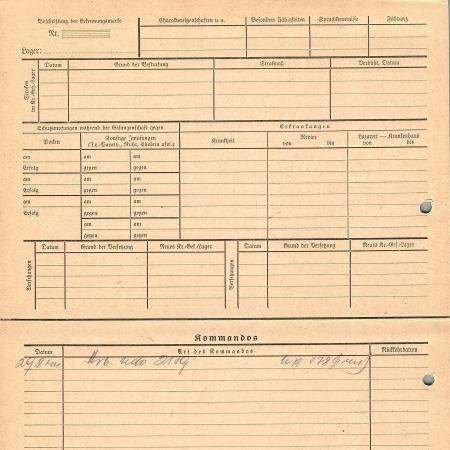 Beschriftung der Erkennungsmarke
Nr.
Lager:
Charaktereigenschaften u. a.
Besondere Fähigkeiten
Sprachkenntnisse
Führung
Strafen im Kr.-Gef.-Lager
Datum
Grund der Bestrafung
Strafmaß
Verbüßt, Datum
Schutzimpfungen während der Gefangenschaft gegen
Erkrankungen
Pocken
Sonstige Impfungen
(Ty.-Paraty., Ruhr, Cholera usw.)
Krankheit
Revier
von bis
Lazarett — Krankenhaus
von bis
am am am
Erfolg gegen gegen
am am am
Erfolg gegen gegen
am am am
Erfolg gegen gegen
am am
gegen gegen
Versetzungen
Datum
Grund der Versetzung
Neues Kr.-Gef.-Lager
Versetzungen
Datum
Grund der Versetzung
Neues Kr.-Gef./Lager
Kommandos
Datum
Art des Kommandos
Rückkehrdatum